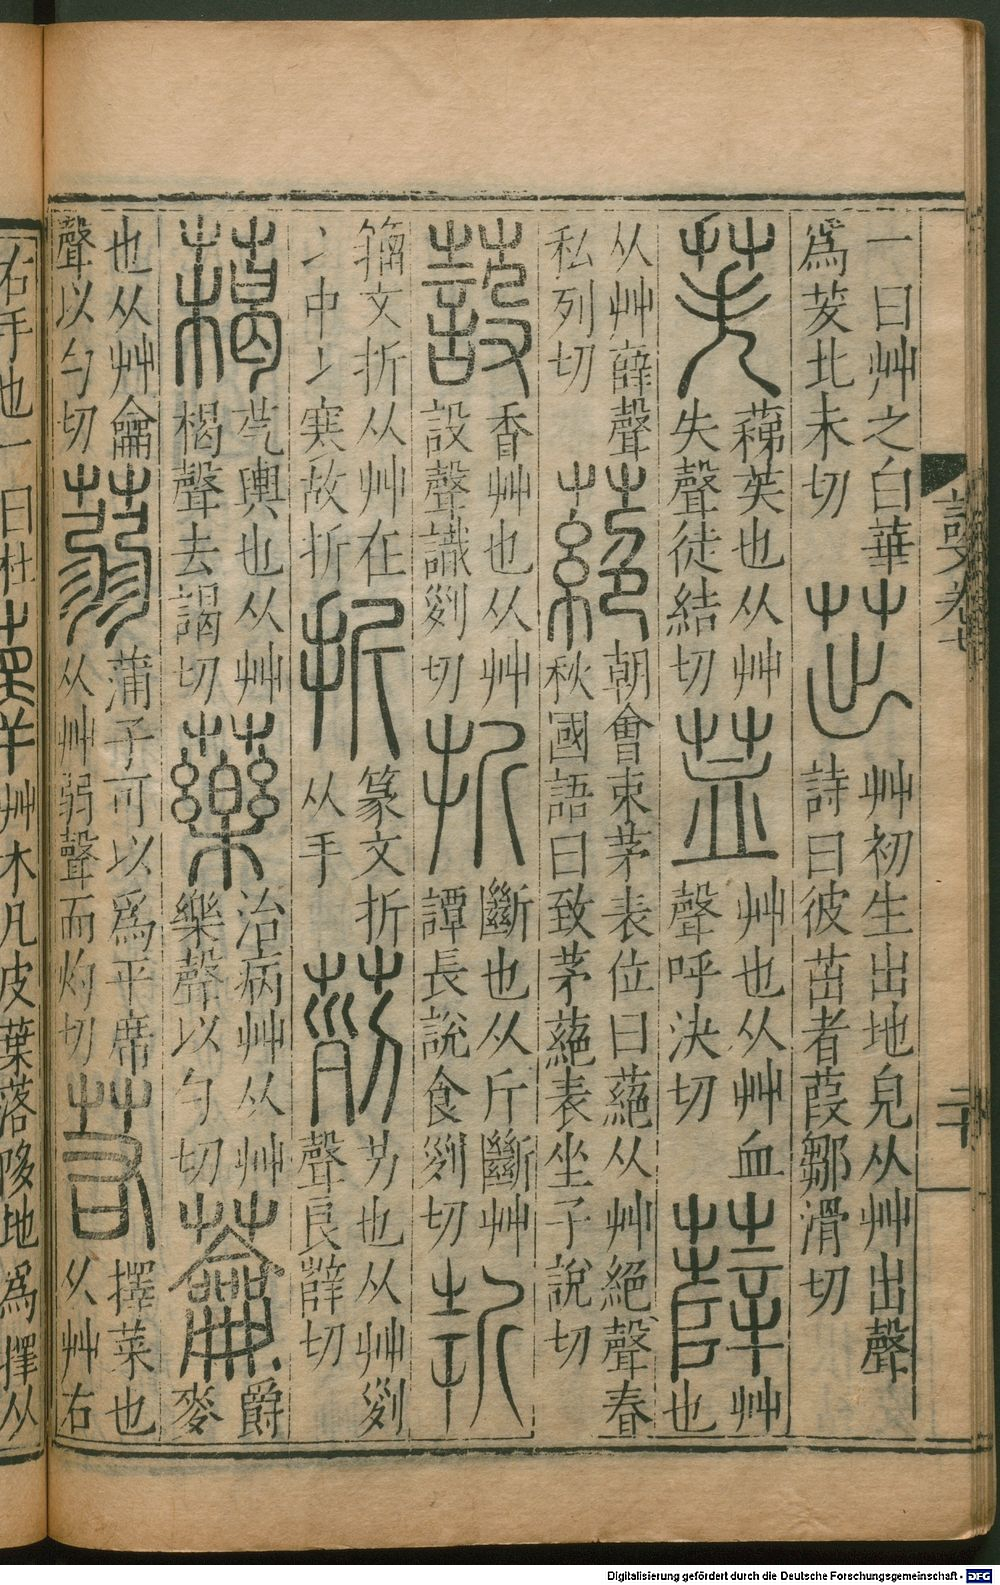 說文卷七
二十
一曰艸之白華
爲茇北末切
茁
艸初生出地皃从艸出聲
詩曰彼茁者葭鄒滑切
苵
蕛苵也从艸
失聲徒結切
艸也从艸血
聲呼決切
薛
艸
也
从艸薛聲
私列切
蕝
朝會束茅表位曰蕝从艸絕聲春
秋國語曰致茅蕝表坐子說切
蔎
香艸也从艸
設聲識列切
折
斷也从斤斷艸
譚長說食列切
折
籒文折从艸在
冫中冫寒故折
折
篆文折
从手
茢
芀也从艸列
聲良薛切
藒
芞輿也从艸
楬聲去謁切
藥
治病艸从艸
樂聲以勺切
蘥
爵
麥
也从艸龠
聲以勺切
蒻
蒲子可以爲平席
从艸弱聲而灼切
若
擇菜也
从艸右
右手也一曰杜
艸木凡皮葉落陊地爲擇从
Digitalisierung gefördert durch die Deutsche Forschungsgemeinschaft - DFG